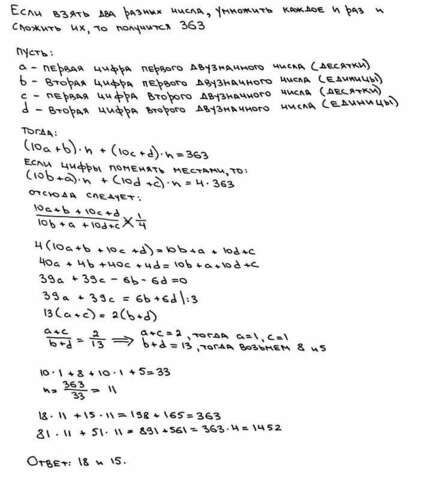 Если взять два разных числа, умножить каждое n раз и
сложить их, то получится 363
Пусть:
a - первая цифра первого двузначного числа (десятки)
b - вторая цифра первого двузначного числа (единицы)
c - первая цифра второго двузначного числа (десятки)
d - вторая цифра второго двузначного числа (единицы)
Тогда:
(10a+b)·n + (10c+d)·n=363
Если цифры поменять местами, то:
(10b+a)·n + (10d+c)·n = 4·363
Отсюда следует:
10a+b + 10c+d / 10b+a + 10d+c × 1/4
4(10a+b + 10c+d)=10b+a + 10d+c
40a + 4b +40c +4d = 10b+a+10d+c
39a + 39c - 6b - 6d =0
39a + 39c = 6b+6d |:3
13(a+c) = 2(b+d)
a+c / b+d = 2/13 ⟹ a+c=2, тогда a=1, c=1
b+d=13, тогда возьмем 8 и 5
10·1+8+10·1+5=33
n= 363/33 = 11
18·11 +15·11 = 198 +165 = 363
81·11 + 51·11 = 891 +561 = 363·4=1452
Ответ: 18 и 15.